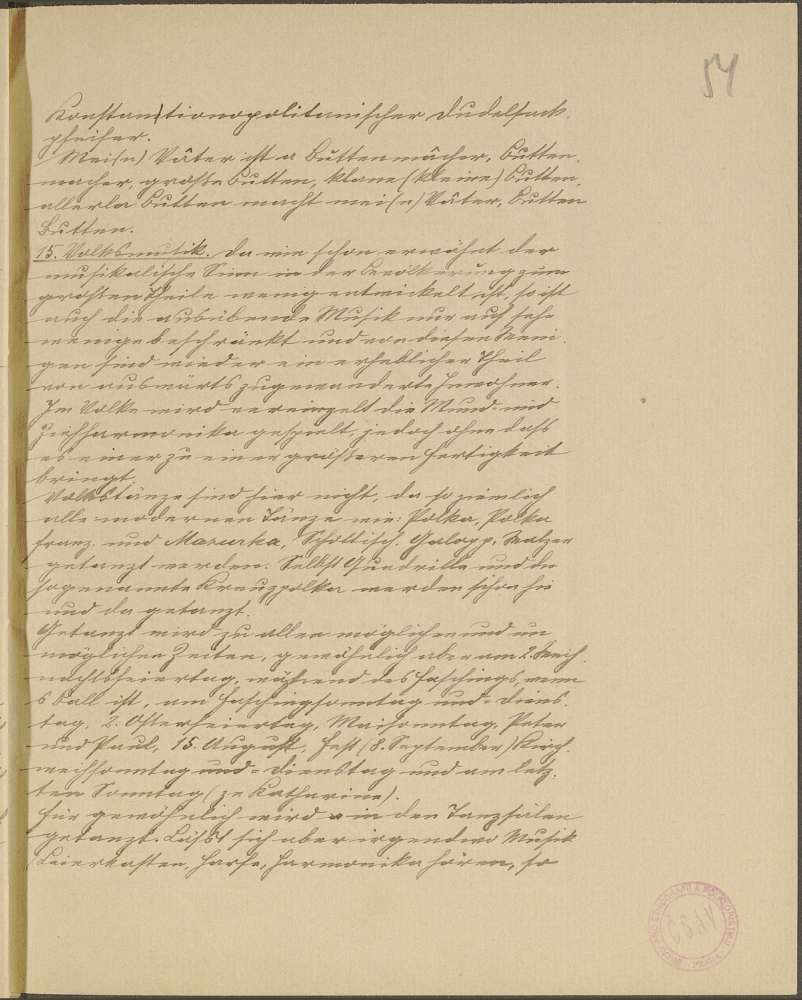 54
Konstantionopolitanischer Dudelsack-
pfeifer.
Mei(n) Vâter ist a Buttenmâcher, Butten-
macher, große Butten, klane (kleine) Butten,
allerla Butten macht mei(n) Vâter, Butten
Butten.
15. Volksmusik. Da wie schon erwähnt der
musikalische Sinn in der Bevölkerung zum
großten Theile wenig entwickelt ist, so ist
auch die ausübende Musik nur auf sehr
wenige beschränkt und von diesen Weni-
gen sind wieder ein erheblicher Theil
von auswärts zugewanderte Inwohner.
Im Volke wird vereinzelt die Mund- und
Ziehharmonika gespielt, jedoch ohne daß
es einer zu einer größeren Fertigkeit
bringt.
Volkstänze sind hier nicht, da so ziemlich
alle modernen Tänze wie: Polka, Polka
franz. und Mazurka, Schottisch, Galopp, Walzer
getanzt werden. Selbst Quadrille und die
sogenannte Kreuzpolka werden schon hie
und da getanzt.
Getanzt wird zu allen möglichen und un-
möglichen Zeiten, gewöhnlich aber am 2. Weih-
nachtsfeiertag, während des Faschings, wenn
s Ball ist, am Faschingsonntag und - Diens-
tag, 2. Osterfeiertag, Maisonntag, Peter
und Paul, 15. August, Fest (8. September) Kirch-
weihsonntag und - Dienstag und am letz-
ten Sonntag (zu Katharina).
Für gewöhnlich wird in den Tanzsälen
getanzt. Läßt sich aber irgendwo Musik
(Leierkasten, Harfe, Harmonika hören, so